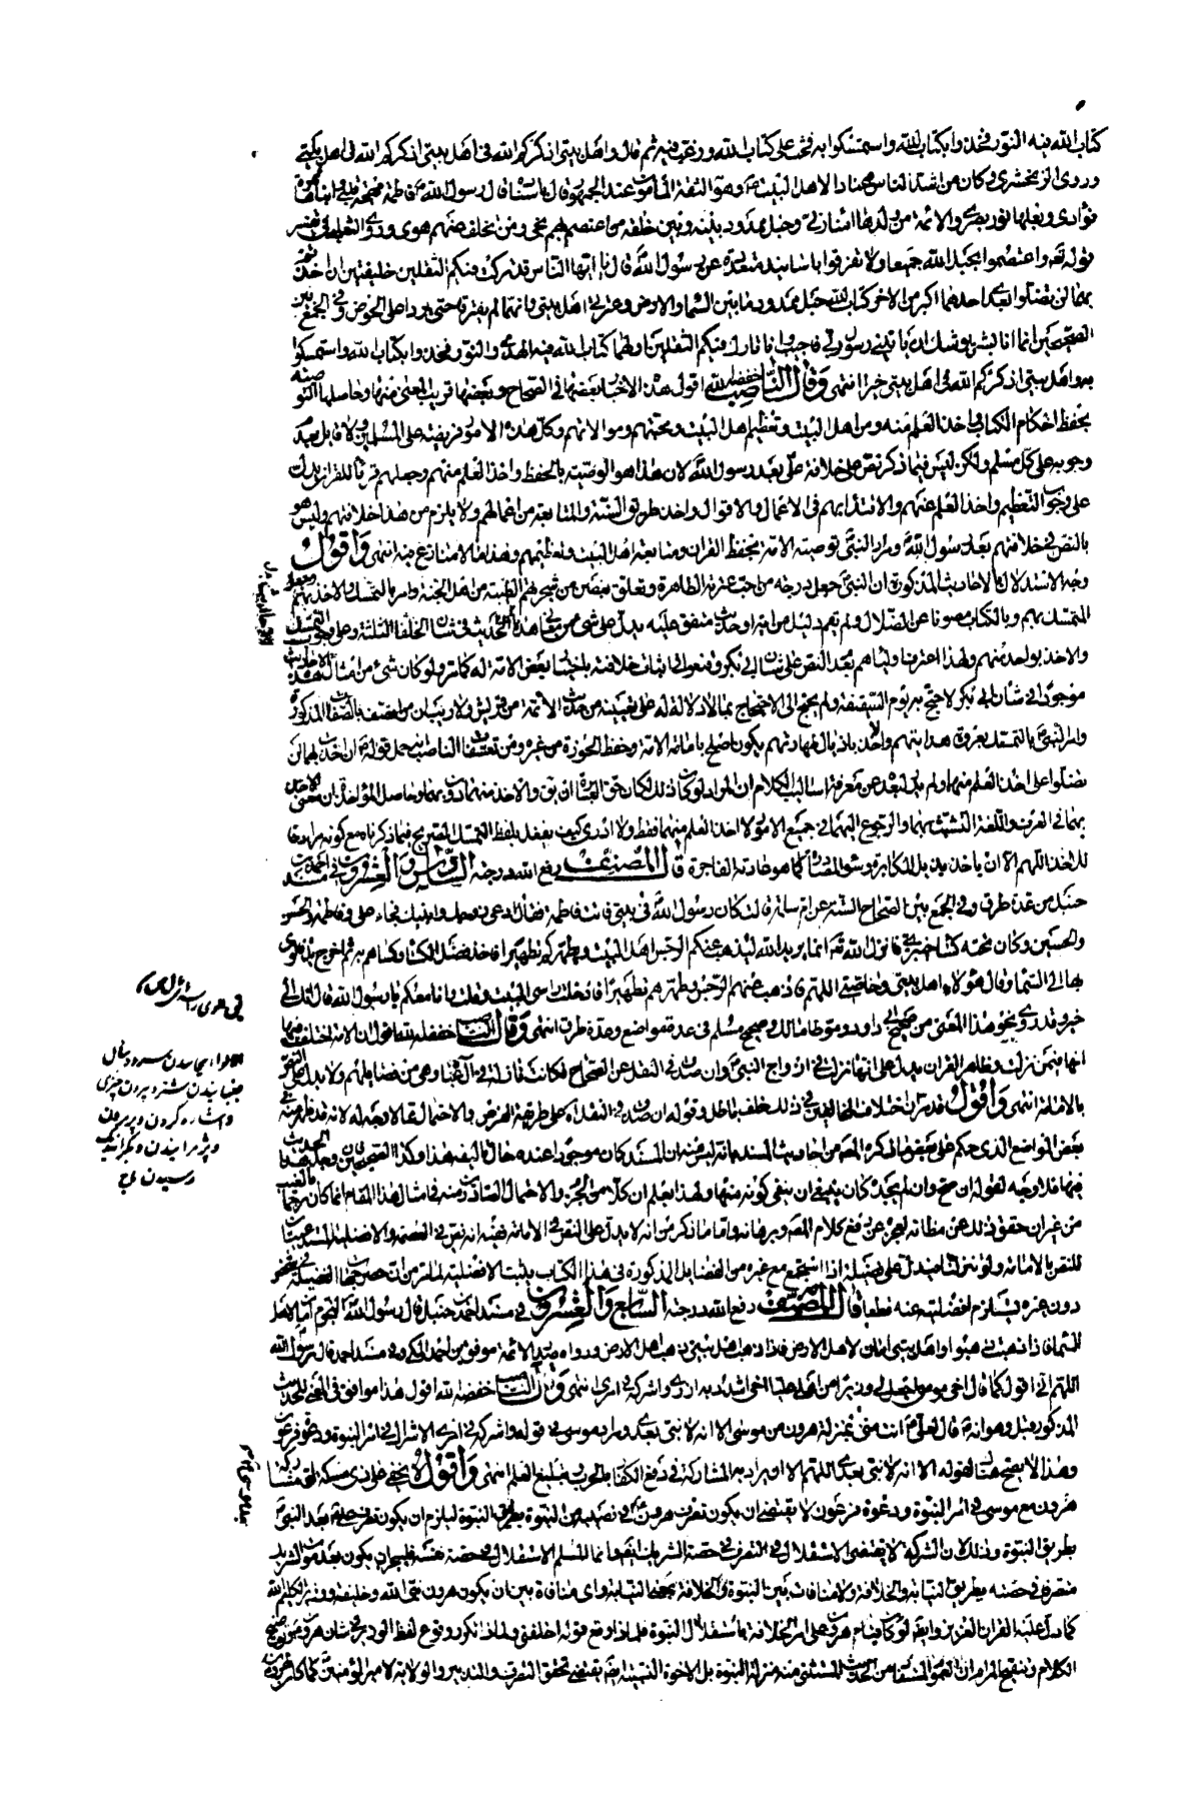 كتاب الله فيه النور فخذوا بكتاب الله واستمسكوا به فحث على كتاب الله ورغب فيه ثم قال واهل بيتي اذكركم الله في اهل بيتي اذكركم الله في اهل بيتي
وروى الزمخشري وكان من اشد الناس عنادا لاهل البيت وهو الثقة المامون عند الجمهور قال باسناده قال رسول الله فاطمة مهجة قلبي وابناها ثمرة
فؤادي وبعلها نور بصري والائمة من ولدها امناء ربي وحبل ممدود بينه وبين خلقه من اعتصم بهم نجى ومن تخلف عنهم هوى وروى الثعلبي في تفسير
قوله تعالى واعتصموا بحبل الله جميعا ولا تفرقوا باسانيد متعددة عن رسول الله قال يا ايها الناس قد تركت فيكم الثقلين خليفتين ان اخذتم
بهما لن تضلوا بعدي احدهما اكبر من الاخر كتاب الله حبل ممدود ما بين السماء والارض وعترتي اهل بيتي وانهما لم يفترقا حتى يردا على الحوض وفي الجمع بين
الصحيحين انما انا بشر يوشك ان ياتيني رسول ربي فاجيب وانا تارك فيكم الثقلين اولهما كتاب الله فيه الهدى والنور فخذوا بكتاب الله واستمسكوا
به واهل بيتي اذكركم الله في اهل بيتي خيرا انتهى وقال الناصب خفضه الله اقول هذه الاخبار بعضها في الصحاح وبعضها قريب المعنى منها وحاصلها التوصية
بحفظ احكام الكتاب واخذ العلم منه ومن اهل البيت وتعظيم اهل البيت ومحبتهم وموالاتهم وكل هذه الامور فريضة على المسلمين ولا قائل بعدم
وجوبه على كل مسلم ولكن ليس فيما ذكر نص على خلافة علي بعد رسول الله لان هذا هو الوصية بالحفظ واخذ العلم منهم وجعلهم قرناء للقران يدل
على وجوب التعظيم واخذ العلم عنهم والاقتداء بهم في الاعمال والاقوال واخذ طريق السنة والمتابعة من اعمالهم ولا يلزم من هذا خلافتهم وليس هو
بالنص في خلافتهم بعد رسول الله ومراد النبي توصية الامة بحفظ القران ومتابعة اهل البيت وتعظيمهم وهذا مما لا منازع فيه انتهى واقول
وجه الاستدلال بالاحاديث المذكورة ان النبي جعل درجة من احب عترته الطاهرة وتعلق بغصن من شجرهم الطيبة من اهل الجنة وامر بالتمسك والاخذ بهم وجعل
المتمسك بهم وبالكتاب مصونا عن الضلال ولم يقم دليل من اية او حديث متفق عليه يدل على شيء من نحو هذا الحديث في شان الخلفاء الثلثة وعلى وجوب التمسك
والاخذ بواحد منهم ولهذا اعترف اولياءهم بفقد النص على شان ابي بكر وقنعوا في اثبات خلافته باختيار بعض الامة له كما مر ولو كان شيء من امثال هذه الاحاديث
موجودا في شان ابي بكر لاحتج به يوم السقيفة ولم يحتج الى الاحتجاج بما لا دلالة له على تعيينه من حديث الائمة من قريش ولا ريب ان من اتصف بالصفات المذكورة
وامر النبي بالتمسك بعروة هدايتهم والاخذ باذيال طهارتهم يكون اصلح بامامة الامة وحفظ الحوزة من غيره ومن تعسفات الناصب انه حمل قوله ان اخذتم بهما لن
تضلوا على اخذ العلم منهما ولم يدر لبعده عن معرفة اساليب الكلام ان المراد لو كان ذلك لكان حق العبارة ان يق والاخذ منهما دون بهما وحاصل المؤاخذة ان معنى الاخذ
بهما في العرف واللغة التشبث بهما والرجوع اليهما في جميع الامور لا اخذ العلم منهما فقط ولا ادري كيف يفعل بلفظ التمسك الصريح فيما ذكرناه مع كونه مرادفا
للاخذ اللهم الا ان ياخذ بذيل المكابرة وسؤ المصادرة كما هو عادته الفاجرة قال المصنف رفع الله درجته السادس والعشرون في مسند احمد بن
حنبل من عدة طرق وفي الجمع بين الصحاح الستة عن ام سلمة قالت كان رسول الله في بيتي فاتت فاطمة فقال ادعي زوجك وابنيك فجاء علي وفاطمة والحسن
والحسين وكان تحته كساء خيبري فانزل الله تعالى انما يريد الله ليذهب عنكم الرجس اهل البيت ويطهركم تطهيرا فاخذ فضل الكساء وكساهم به ثم اخرج يده فالوى
بها الى السماء وقال هؤلاء اهل بيتي وخاصتي اللهم فاذهب عنهم الرجس وطهرهم تطهيرا فادخلت راسي البيت وقلت وانا معكم يا رسول الله قال انك الى
خير وقد روي نحو هذا المعنى من صحيح ابي داود وموطا مالك وصحيح مسلم في عدة مواضع وعدة طرق انتهى وقال الناصب خفضه الله اقول ان الامة اختلفت فيها
انها فيمن نزلت وظاهر القران يدل على انها نزلت في ازواج النبي وان صدق في النقل عن الصحاح فكانت نازلة في آل العباء وهي من فضائلهم ولا يدل على النص
بالامامة انتهى واقول قد مر ان اختلاف المخالفين في ذلك خلف باطل وقوله ان صدق في النقل اه على طريقة الفرض والاحتمال مما لا وجه له لانه قد ظهر منه في
بعض المواضع الذي حكم على بعض ما ذكره المصنف من احاديث المسند بانه ليس فيه ان المسند كان موجودا عنده حال تاليفه هذا وكذا الصحيحين وجد هذا الحديث
فيها فلا وجه لقوله ان صح وان لم يجد كان ينبغي ان ينفي كونه منها وبهذا يعلم ان كلا من الجزم والاحتمال الصادر منه في امثال هذا المقام انما كان رجما بالغيب
من غير ان حقق ذلك عن مظانه لعجزه عن دفع كلام المصنف وبرهانه واما ما ذكر من انه لا يدل على النص في الامامة ففيه انه نص في العصمة والافضلية المستدعيتان
للنص بالامامة ولو تنزلنا فيدل على فضيلة اذا اجتمع مع غيره من الفضايل المذكورة في هذا الكتاب يثبت الافضلية لما مر من ان حصر جميع الفضيلة في شخص
دون غيره يستلزم افضليته عنه قطعا قال المصنف رفع الله درجته السابع والعشرون في مسند احمد بن حنبل قال رسول الله النجوم امان لاهل
السماء فاذا ذهبت ذهبوا واهل بيتي امان لاهل الارض فاذا ذهب اهل بيتي ذهب اهل الارض ورواه صدر الائمة موفق بن احمد المكي وفي مسند احمد قال رسول الله
اللهم اني اقول كما قال اخي موسى اجعل لي وزيرا من اهلي عليا اخي اشدد به ازري واشركه في امري انتهى وقال الناصب خفضه الله اقول هذا موافق في المعنى للحديث
المذكور قبل وهو انه قال لعلي انت مني بمنزلة هرون من موسى الا انه لا نبي بعدي ومراد موسى في قوله واشركه في امري الاشراك في امر النبوة ودعوة فرعون
وهذا لا يصح هنا لقوله الا انه لا نبي بعدي اللهم الا ان يراد به المشاركة في دفع الكفار بالحرب وتبليغ العلم انتهى واقول لا يخفى على ذي مسكة ان مشاركة
هرون مع موسى في امر النبوة ودعوة فرعون لا يقتضي ان يكون تصرف هرون في نصيبه من النبوة بطريق النبوة ليلزم ان يكون تصرف علي بعد النبي
بطريق النبوة وذلك لان الشركة لا يقتضي الاستقلال في التصرف في حصة الشريك ايضا وانما المسلم الاستقلال في حصة نفسه فليجز ان يكون بعد موت الشريك
متصرفا في حصته بطريق النيابة والخلافة ولا منافاة بين النبوة والخلافة بمعنى النيابة واي منافاة بين ان يكون هرون نبي الله وخليفة ووزير الكليم الله
كما دل عليه القران العزيز وايضا لو كان قيام هرون على امر الخلافة بما استقلال النبوة فلماذا وقع قوله اخلفني ولماذا تكرر وقوع لفظ الوزير في شان هرون وتوضيح
الكلام وتنقيح المرام ان العموم المستفاد من الحديث المستثنى منه منزلة النبوة بل الاخوة النسبية ايضا يقتضي تحقق التصرف والتدبير والولاية لامير المؤمنين كما كان لهرون
الالواء بجانيدن سر و دنبال
جنبانيدن شتر و بيرون چيزى
واشاره كردن و بر
و پژمرانيدن و بكرانه ريك
رسيدن تاج